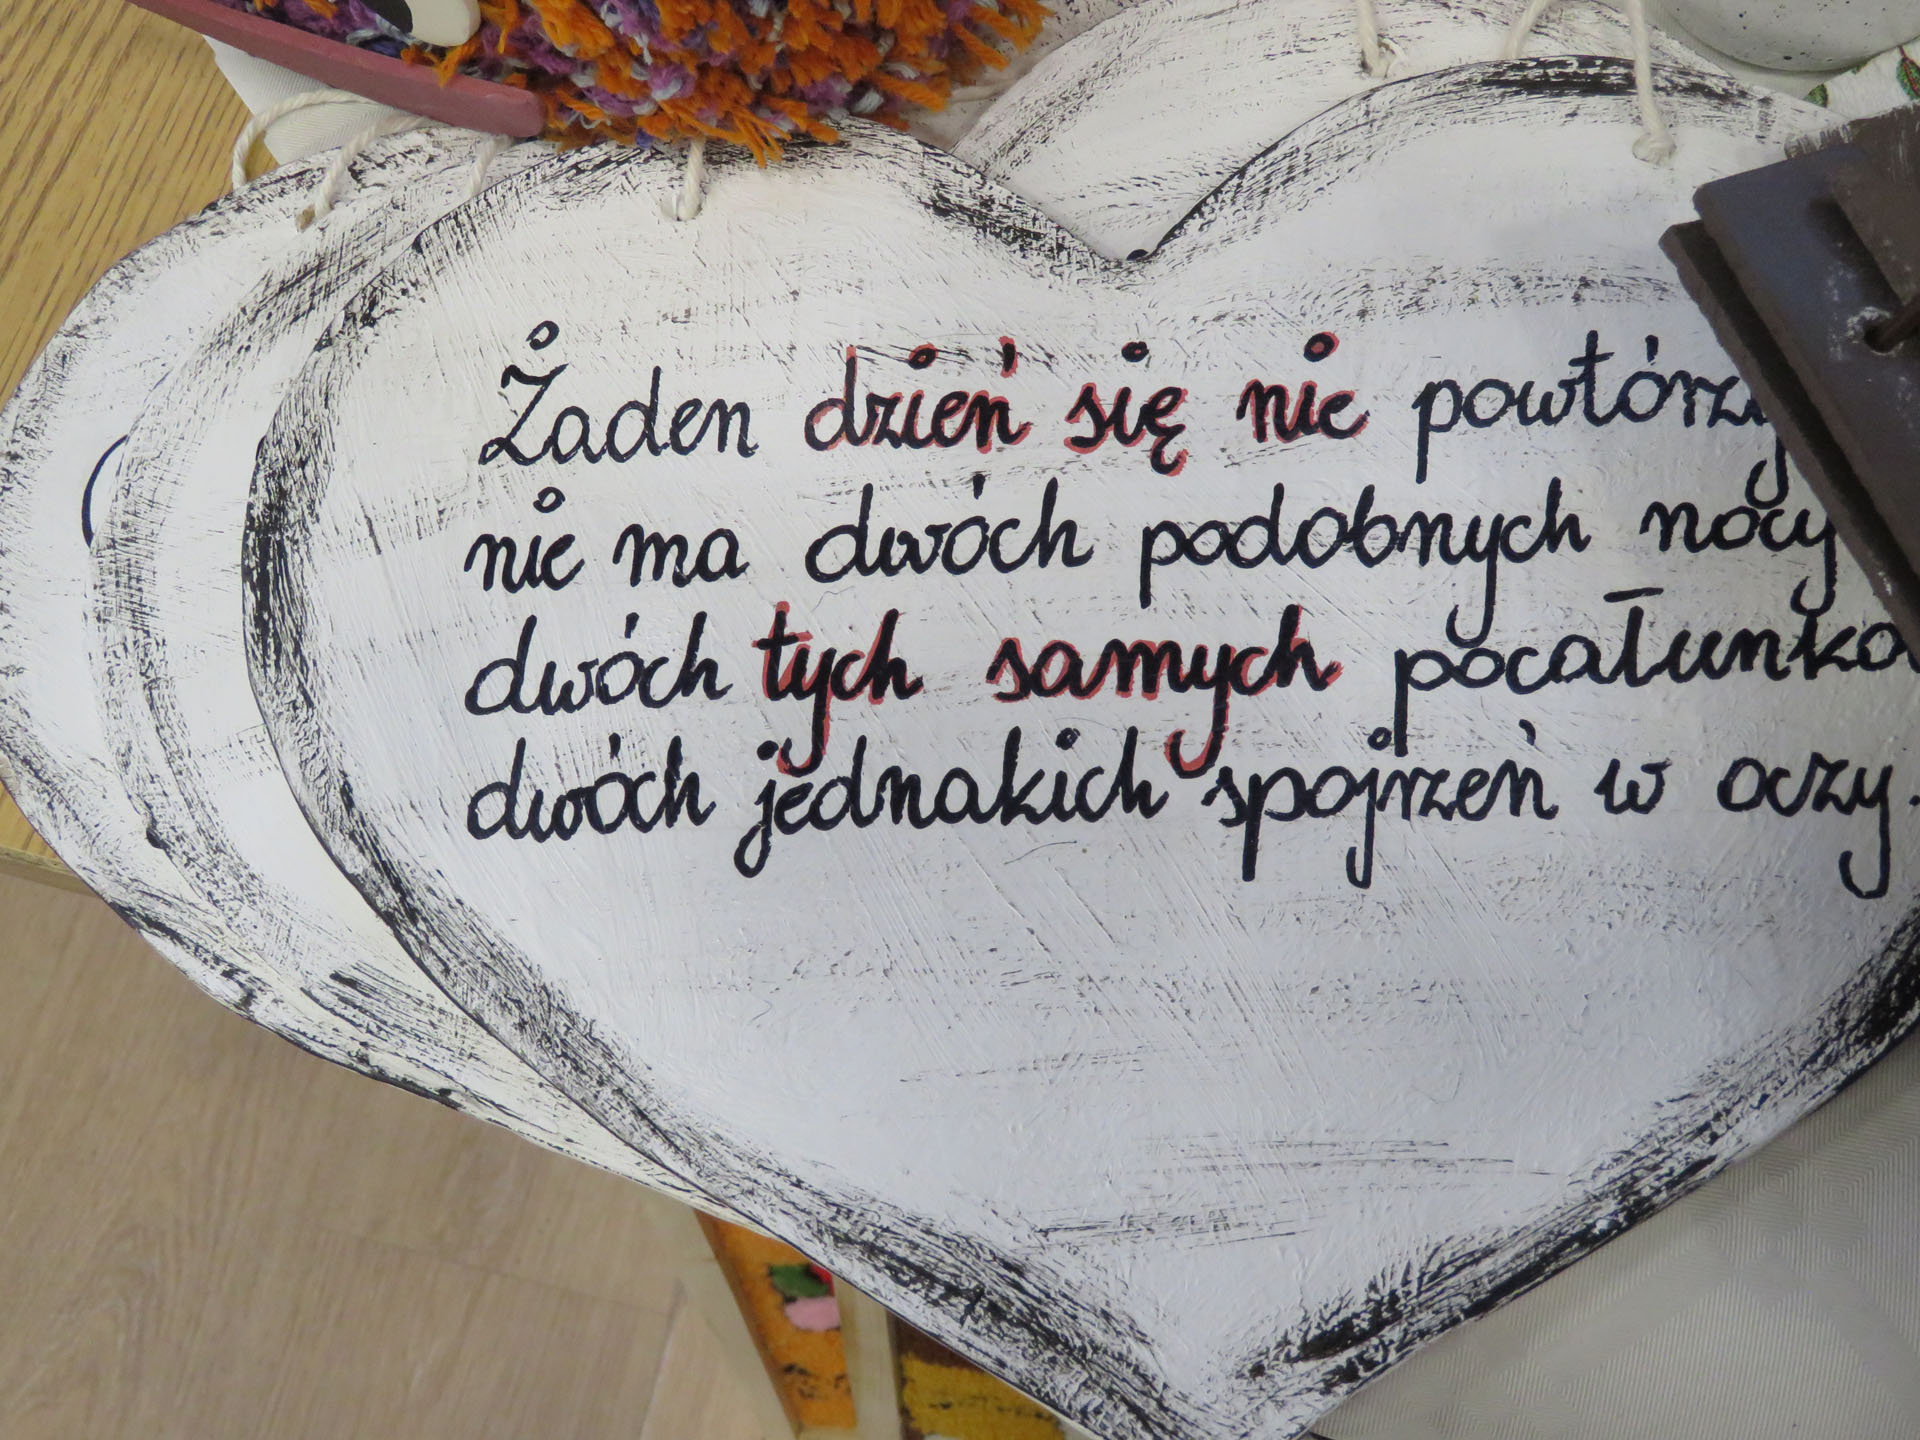 Żaden dzień się nie powtórzy
nie ma dwóch podobnych nocy
dwóch tych samych pocałunkó
dwóch jednakich spojrzeń w oczy.